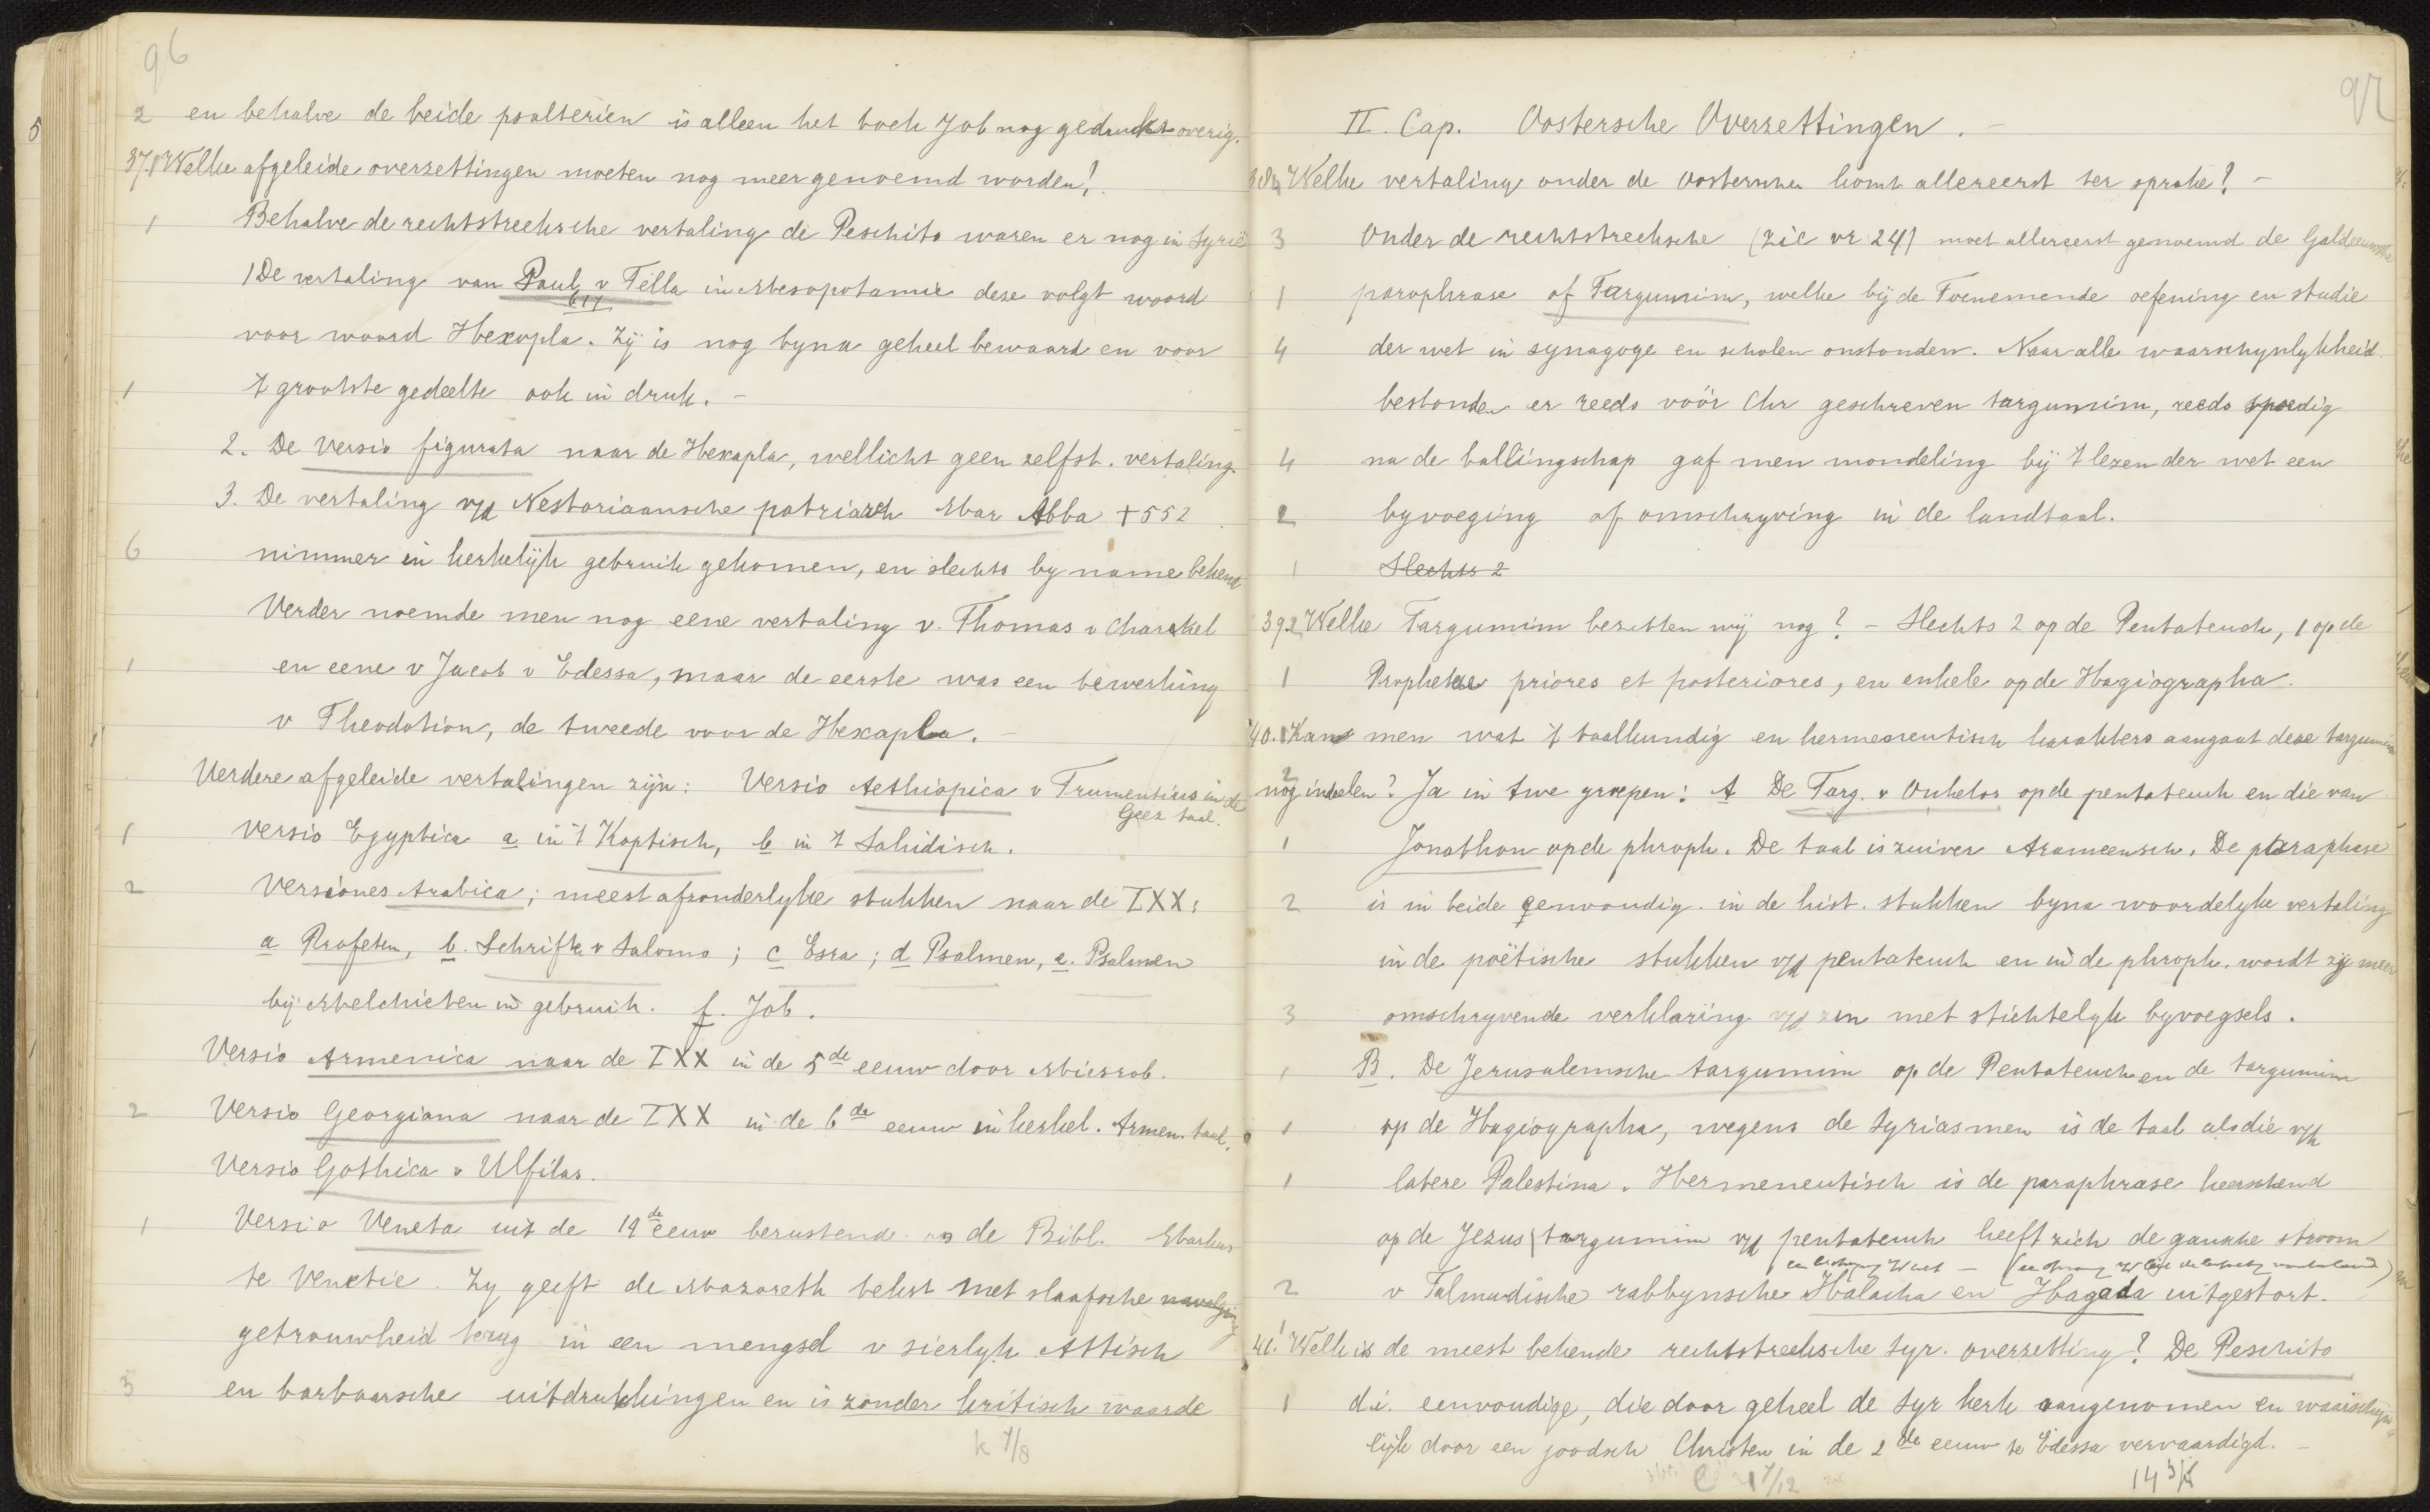 96
2 en behalve de beide psalteriën is alleen het boek Job nog gedrukt overig.
37. Welke afgeleide overzettingen moeten nog meer genoemd worden?
1 Behalve de rechtstreeksche vertaling de Peschito waren er nog in Syrië
1 De vertaling van Paul v Tella in Mesopotamie deze volgt woord
617
voor woord Hexapla. Zij is nog byna geheel bewaard en voor
1 't grootste gedeelte ook in druk. -
2. De Versio figurata naar de Hexapla, wellicht geen zelfst. vertaling.
3. De vertaling v/d Nestoriaansche patriarch Mar Abba +552
6 nimmer in kerkelijk gebruik gekomen, en slechts by name bekend
Verder noemde men nog eene vertaling v. Thomas v Charkel
1 en eene v Jacob v Edessa, maar de eerste was een bewerking
v Theodotion, de tweede voor de Hexapla. -
Verdere afgeleide vertalingen zijn: Versio Aethiopica v Frumentius in de
Geez taal.
1 Versio Egyptica a in 't Koptisch, b in 't Sahidisch.
2 Versiones Arabica; meest afzonderlyke stukken naar de LXX:
a Profeten, b. Schrift. v Salomo; c Esra; d Psalmen, e. Psalmen
bij Melchieten in gebruik. f. Job.
Versio Armenica naar de LXX in de 5de eeuw door Miesrob.
2 Versio Georgiana naar de LXX in de 6de eeuw in kerkel. Armen. taal.
Versio Gothica v Ulfilas.
1 Versio Veneta uit de 14de eeuw berustende op de Bibl. Markus
te Venetie. Zy geeft de Mazoreth tekst met slaafsche navolging
getrouwheid terug in een mengsel v sierlyk Attisch
3 en barbaarsche uitdrukkingen en is zonder kritisch waarde
k 7/8
97
II. Cap. Oostersche Overzettingen. -
38. Welke vertaling onder de oostersche komt allereerst ter sprake? -
3 Onder de rechtstreeksche (zie vr 24) moet allereerst genoemd de Galdeeuwsche
1 paraphrase of Targumim, welke bij de Toenemende oefening en studie
4 der wet in synagoge en scholen onstonden. Naar alle waarschynlykheid
bestonden er reeds vóór Chr geschreven targumim, reeds spoedig
4 na de ballingschap gaf men mondeling bij 't lezen der wet een
2 byvoeging of omschryving in de landtaal.
1 Slechts 2
39. 2 Welke Targumim bezitten wij nog? - Slechts 2 op de Pentateuch, 1 op de
1 Prophetae priores et posteriores, en enkele op de Hagiographa.
40. Kan men wat 't taalkundig en hermeneutisch karakters aangaat deze targumim
2 nog indeelen? Ja in twe groepen: A De Targ. v Onkelos op de pentateuch en die van
1 Jonathan op de phroph. De taal is zuiver Arameensch. De paraphase
2 is in beide eenvoudig. in de hist. stukken byna woordelyke vertaling
in de poëtische stukken v/d pentateuch en in de phroph. wordt zij meer
3 omschryvende verklaring v/d zin met stichtelyk byvoegsels.
1 B. De Jerusalemsche targumim op de Pentateuch en de targumim
1 op de Hagiographa, wegens de Syriasmen is de taal als die v/h
1 latere Palestina. Hermeneutisch is de paraphrase heerschend
op de Jezus targumim v/d pentateuch heeft zich de gansche stroom
2 v Talmudische rabbynsche Halacha en Hagada uitgestort.
41. Welk is de meest bekende rechtstreeksche Syr. overzetting? De Peschito
1 d.i. eenvoudige, die door geheel de Syr kerk aangenomen en waarschyn
lijk door een joodsch Christen in de 2de eeuw te Edessa vervaardigd. -